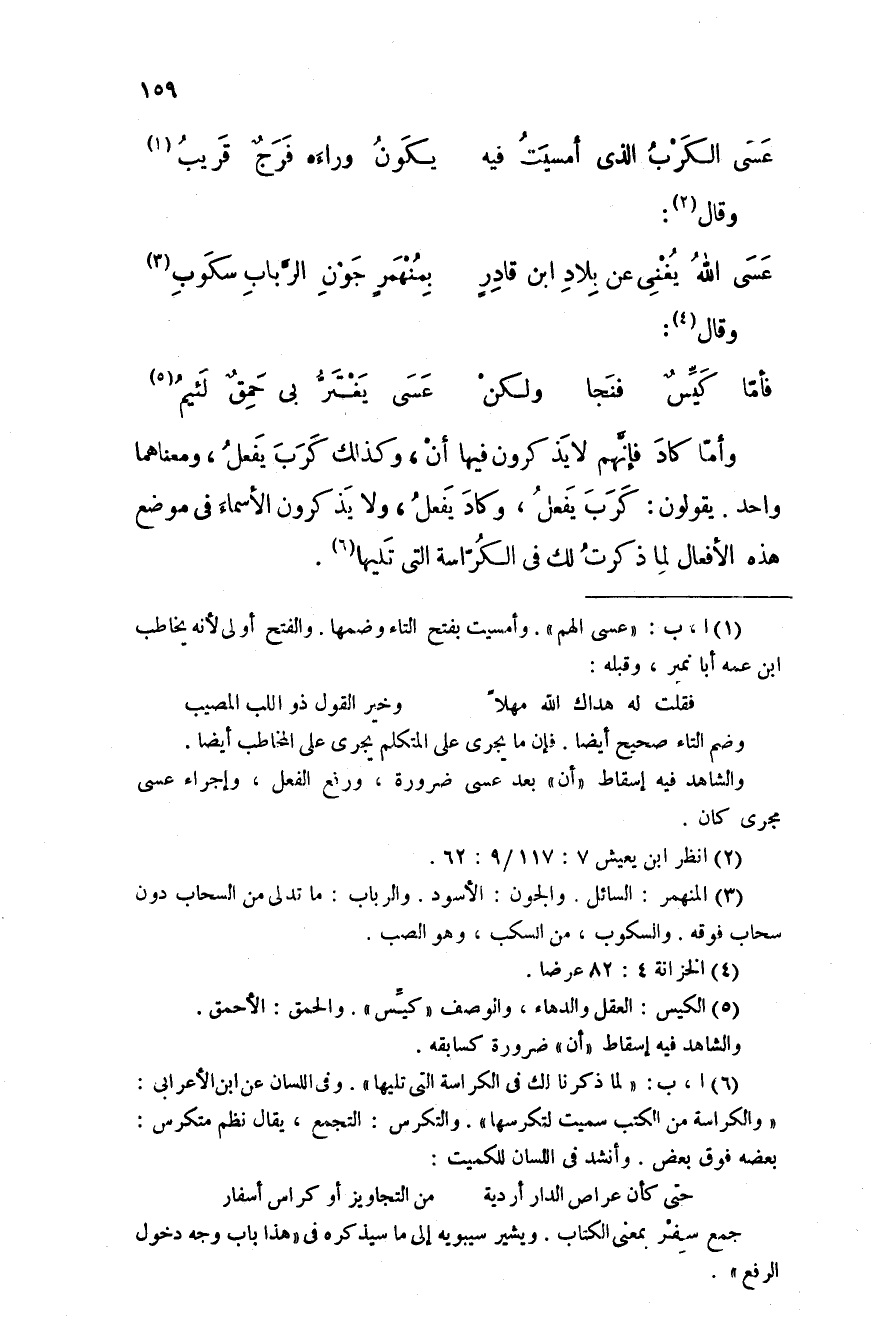 ١٥٩
عَسَى الكَرْبُ الذى أمسيَتُ فيه يكَونُ وراءَه فَرَجٌ قَريبُ (١)
وقال (٢) :
عَسَى اللهُ يُغْنِى عن بِلادِ ابن قادِرٍ بِمُنْهَمَرٍ جَوْنِ الرَّبابِ سكَوبِ (٣)
وقال (٤) :
فأمّا كَيِّسٌ فنَجا ولكنْ عَسَى يَغْتَرُّ بى حَمِقٌ لَئيمُ (٥)
وأمّا كادَ فإنَّهم لا يَذكرون فيها أنْ ، وكذلك كَرَبَ يَفعلُ ، ومعناهما
واحد . يقولون : كَرَبَ يَفعلُ ، وكادَ يَفعلُ ، ولا يَذكرون الأسماءَ فى موضع
هذه الأفعال لِما ذكرتُ لك فى الكُرّاسة التى تَليها (٦) .
(١) ا ، ب : «عسى الهم» . وأمسيت بفتح التاء وضمها . والفتح أولى لأنه يخاطب
ابن عمه أبا نمير ، وقبله :
فقلت له هداك الله مهلاً وخير القول ذو اللب المصيب
وضم التاء صحيح أيضا . فإن ما يجرى على المتكلم يجرى على المخاطب أيضا .
والشاهد فيه إسقاط «أن» بعد عسى ضرورة ، ورفع الفعل ، وإجراء عسى
مجرى كان .
(٢) انظر ابن يعيش ٧ : ١١٧ / ٩ : ٦٢ .
(٣) المنهمر : السائل . والجون : الأسود . والرباب : ما تدلى من السحاب دون
سحاب فوقه . والسكوب ، من السكب ، وهو الصب .
(٤) الخزانة ٤ : ٨٢ عرضا .
(٥) الكيس : العقل والدهاء ، والوصف «كيِّس» . والحمق : الأحمق .
والشاهد فيه إسقاط «أن» ضرورة كسابقه .
(٦) ا ، ب : « لما ذكرنا لك فى الكراسة التى تليها» . وفى اللسان عن ابن الأعرابى :
« والكراسة من الكتب سميت لتكرسها» . والتكرس : التجمع ، يقال نظم متكرس :
بعضه فوق بعض . وأنشد فى اللسان للكميت :
حتى كأن عراص الدار أردية من التجاويز أو كراس أسفار
جمع سِفْر بمعنى الكتاب . ويشير سيبويه إلى ما سيذكره فى «هذا باب وجه دخول
الرفع» .